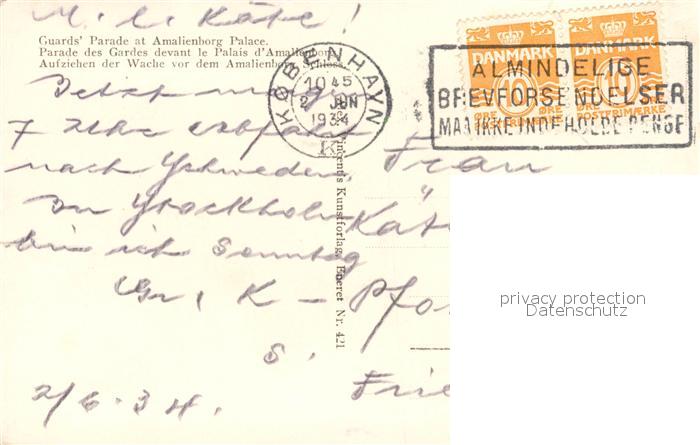 M. l. Käte!
Guards' Parade at Amalienborg Palace.
Parade des Gardes devant le Palais d'Amalienborg.
Aufziehen der Wache vor dem Amalienborg Schloss.
Jetzt
7 Uhr
nach Schweden.
In Stockholm
bin ich Sonntag
Gr. K
2/6.34.
Vincent's Kunstforlag, Eneret Nr. 421
Frau
Käte
Pfo
s.
Frie
KØBENHAVN
10 45
2 JUN
1934
K
DANMARK DANMARK
10 10
ØRE ØRE
POSTFRIMÆRKE
ALMINDELIGE
BREVFORSENDELSER
MAA IKKE INDEHOLDE PENGE
privacy protection
Datenschutz